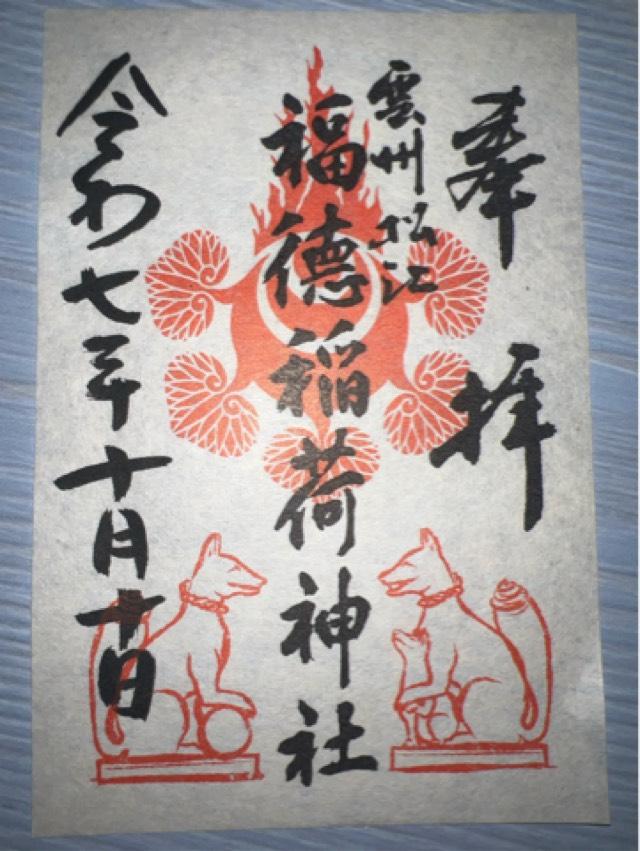 奉拝
雲州松江
福徳稲荷神社
令わ七年十月十日